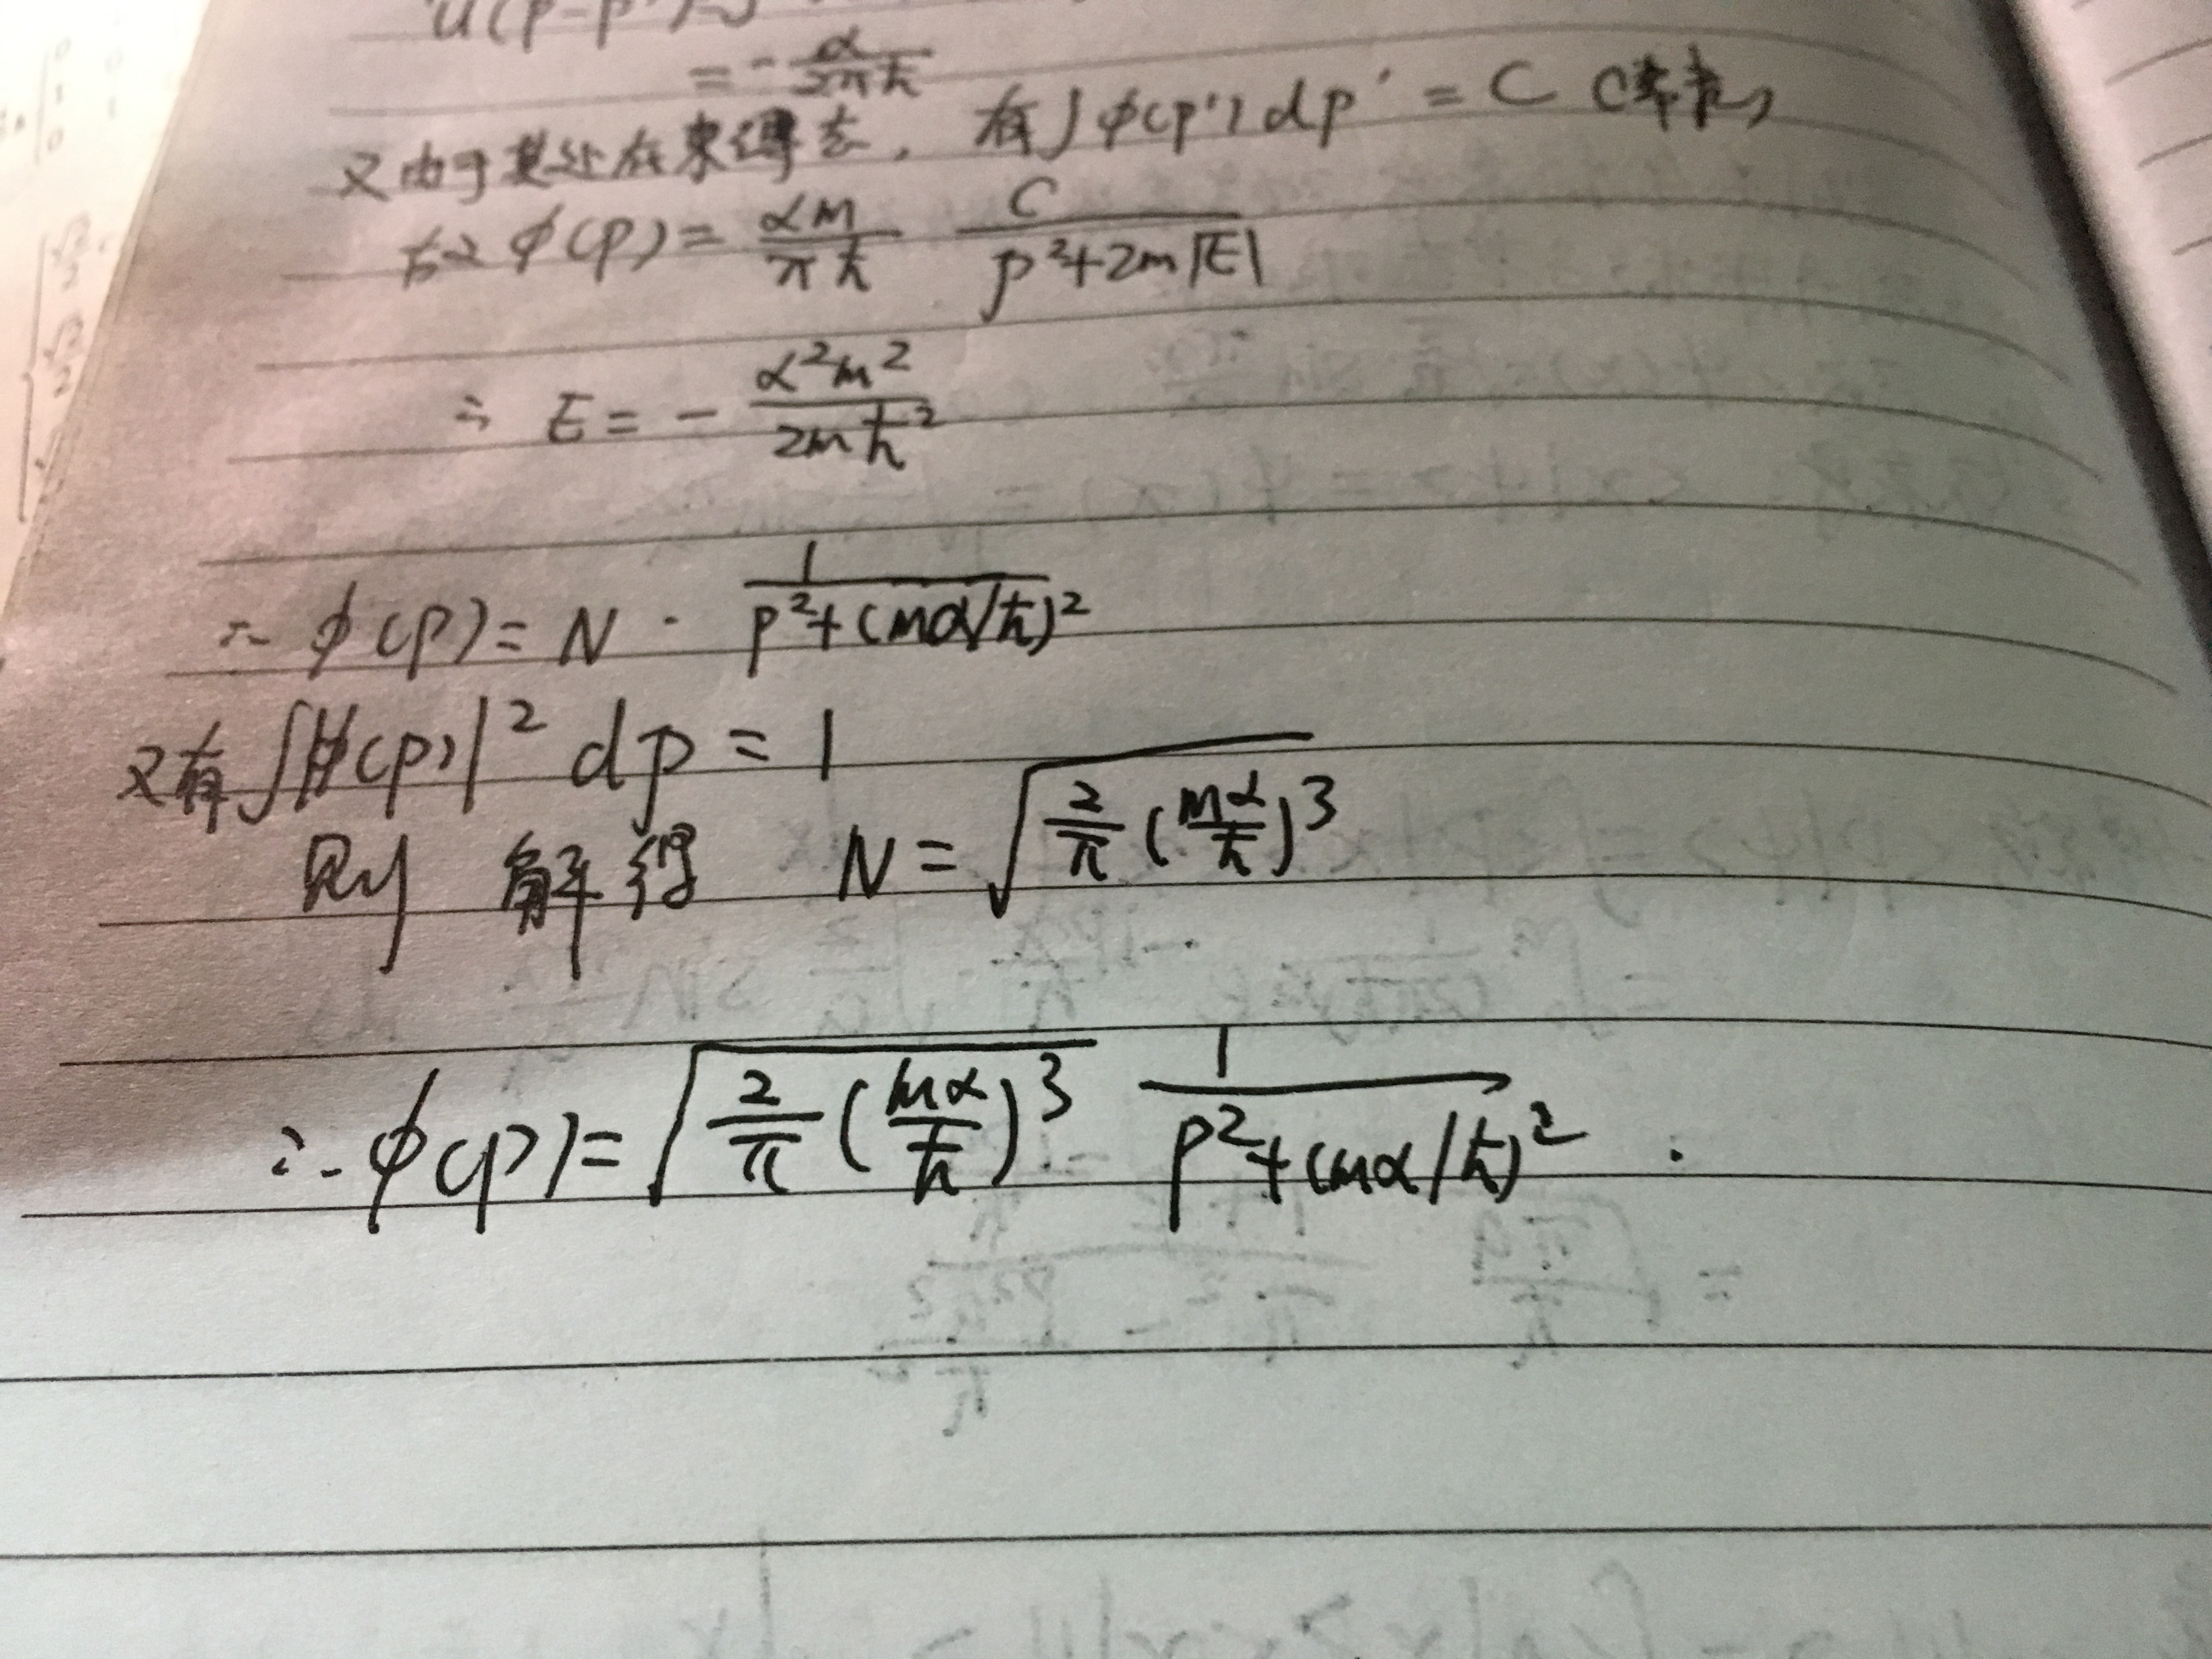 u(p-p')
= -α/2πħ
又由于其处在束缚态, 有∫φ(p')dp' = C (常数)
故 φ(p) = αm/πħ C/p²+2m|E|
∴ E = - α²m²/2mħ²
∴ φ(p) = N · 1/p²+(mα/ħ)²
又有∫|φ(p)|² dp = 1
则 解得 N = √(2/π (mα/ħ)³)
∴ φ(p) = √(2/π (mα/ħ)³) 1/p²+(mα/ħ)² .